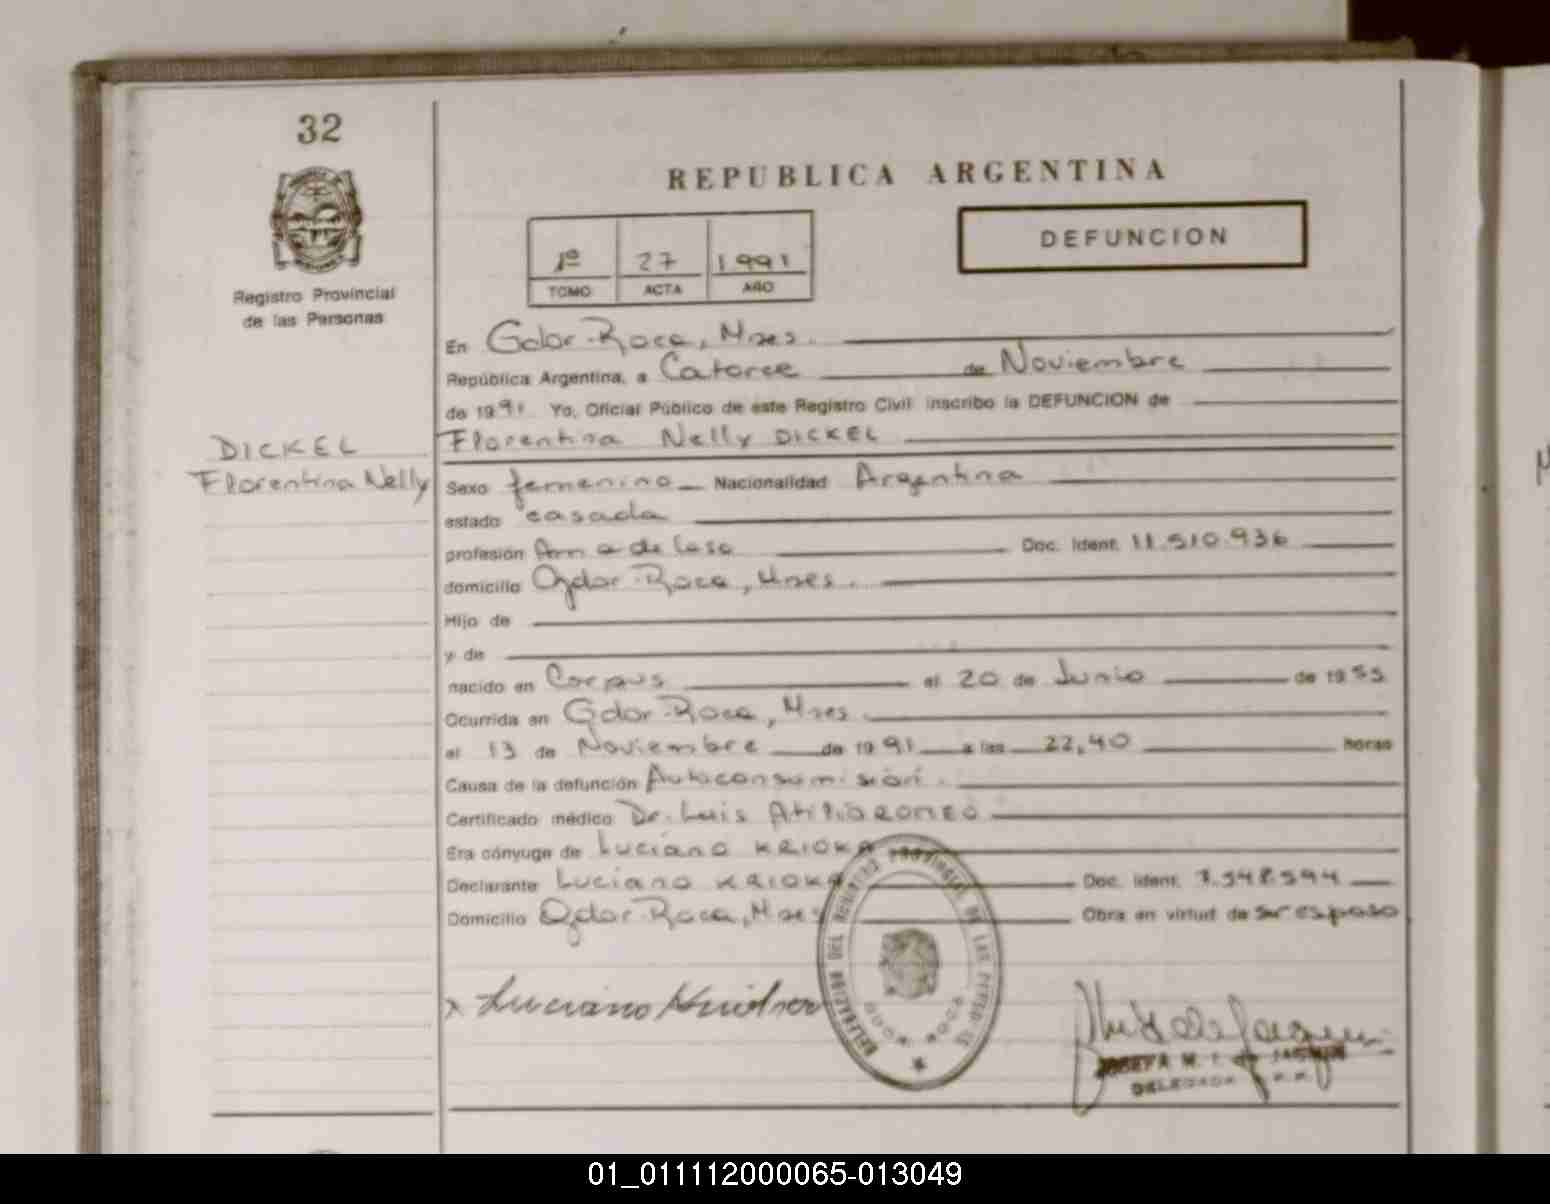 32
REPUBLICA ARGENTINA
DEFUNCION
1º 27 1991
TOMO ACTA AÑO
Registro Provincial
de las Personas
En Gdor-Roca, Mnes.
República Argentina, a Catorce de Noviembre
de 1991 Yo, Oficial Público de este Registro Civil inscribo la DEFUNCION de
DICKEL
Florentina Nelly
Florentina Nelly DICKEL
Sexo femenino Nacionalidad Argentina
estado casada
profesión Ama de Casa Doc. Ident. 11.510.936
domicilio Gdor-Roca, Mnes.
Hijo de
y de
nacido en Corpus el 20 de Junio de 1955
Ocurrida en Gdor-Roca, Mnes
el 13 de Noviembre de 1991 a las 22,40 horas
Causa de la defunción Autoconsumisión.
Certificado médico Dr. Luis Atilio
Era cónyuge de Luciano KRIOKA
Declarante Luciano KRIOKA Doc. Ident. 7.548.594
Domicilio Gdor-Roca, Mnes Obra en virtud de ser esposo
x Luciano
DELEGACION DEL REGISTRO PROVINCIAL DE LAS PERSONAS
GDOR. ROCA
JOSEFA M. I. de
DELEGADA
01_011112000065-013049